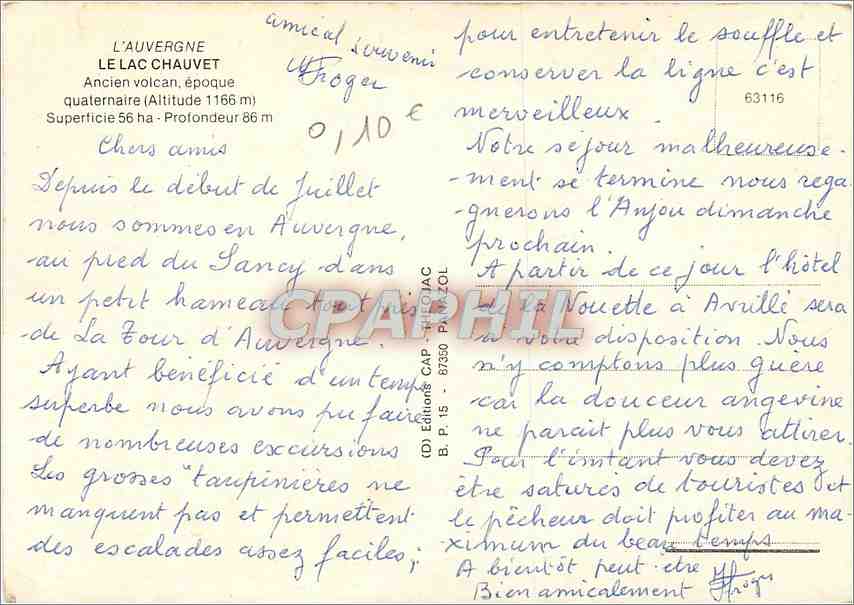 L'AUVERGNE
LE LAC CHAUVET
Ancien volcan, époque
quaternaire (Altitude 1166 m)
Superficie 56 ha - Profondeur 86 m
amical souvenir
Froger
0,10 €
Chers amis
Depuis le début de Juillet
nous sommes en Auvergne,
au pied du Sancy dans
un petit hameau tout près
de La Tour d'Auvergne.
Ayant bénéficié d'un temps
superbe nous avons pu faire
de nombreuses excursions
Les grosses "taupinières ne
manquent pas et permettent
des escalades assez faciles;
(D) Editions CAP - THEOJAC
B. P. 15 - 87350 PANAZOL
CPAPHIL
63116
pour entretenir le souffle et
conserver la ligne c'est
merveilleux.
Notre séjour malheureuse-
-ment se termine nous rega-
-gnerons l'Anjou dimanche
prochain.
A partir de ce jour l'hôtel
de la Nouette à Avrillé sera
à votre disposition. Nous
n'y comptons plus guère
car la douceur angevine
ne parait plus vous attirer.
Pour l'instant vous devez
être saturés de touristes et
le pêcheur doit profiter au ma-
ximum du beau temps
A bientôt peut-être
Bien amicalement Froger